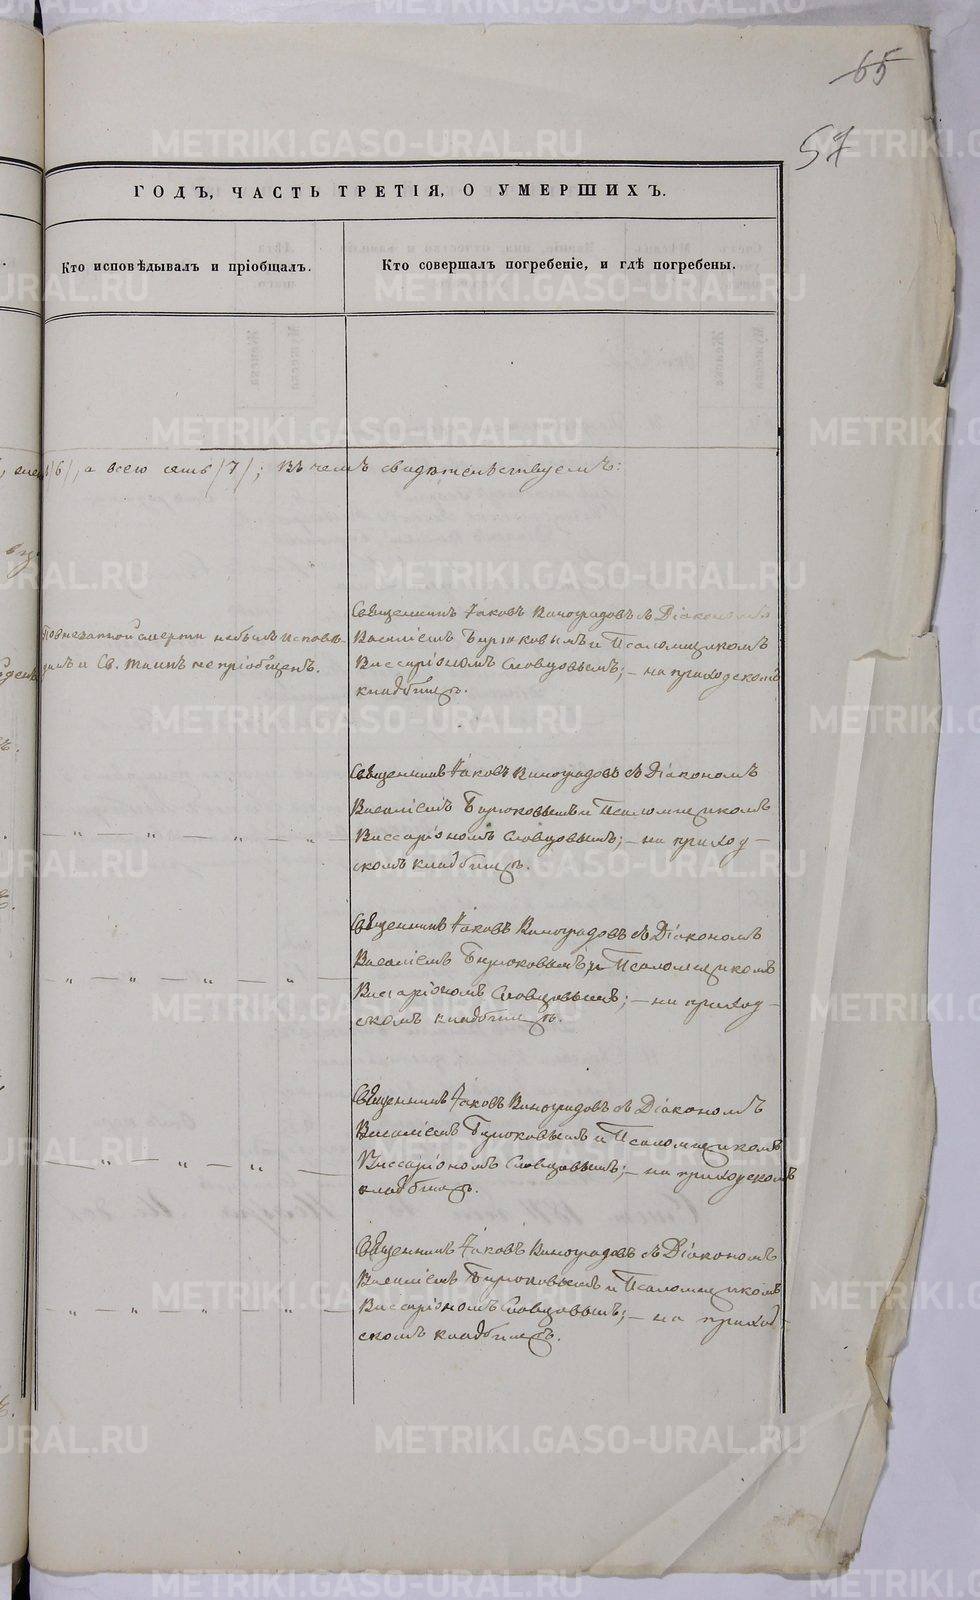 65
57
ГОДЪ, ЧАСТЬ ТРЕТІЯ, О УМЕРШИХЪ.
Кто исповѣдывалъ и пріобщалъ.
Кто совершалъ погребеніе, и гдѣ погребены.
/6/, а всего семь /7/; въ чемъ свидѣтельствуемъ:
По внезапной смерти не былъ исповѣ-
данъ и Св. Таинъ не пріобщенъ.
Священникъ Іаковъ Виноградовъ съ Діакономъ
Василіемъ Бирюковымъ и Псаломщикомъ
Виссаріономъ Словцовымъ; – на приходскомъ
кладбищѣ.
— „ — „ — „ — „ —
Священникъ Іаковъ Виноградовъ съ Діакономъ
Василіемъ Бирюковымъ и Псаломщикомъ
Виссаріономъ Словцовымъ; – на приход–
скомъ кладбищѣ.
— „ — „ — „ — „ — „
Священникъ Іаковъ Виноградовъ съ Діакономъ
Василіемъ Бирюковымъ и Псаломщикомъ
Виссаріономъ Словцовымъ; – на приход–
скомъ кладбищѣ.
— „ — „ — „ —
Священникъ Іаковъ Виноградовъ съ Діакономъ
Василіемъ Бирюковымъ и Псаломщикомъ
Виссаріономъ Словцовымъ; – на приходскомъ
кладбищѣ.
— „ — „ — „ — „ — „ —
Священникъ Іаковъ Виноградовъ съ Діакономъ
Василіемъ Бирюковымъ и Псаломщикомъ
Виссаріономъ Словцовымъ; – на приход–
скомъ кладбищѣ.
METRIKI.GASO-URAL.RU